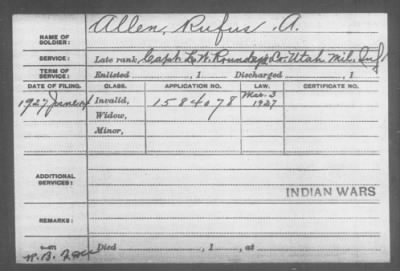 NAME OF SOLDIER: Allen, Rufus A.
SERVICE: Late rank, Capt. L. W. Roundy's Co. Utah Mil. Inf
TERM OF SERVICE: Enlisted , 1 Discharged , 1
DATE OF FILING. CLASS. APPLICATION NO. LAW. CERTIFICATE NO.
1927 June Invalid, 1584078 Mar. 3 1927
Widow,
Minor,
ADDITIONAL SERVICES:
INDIAN WARS
REMARKS:
Died , 1 , at